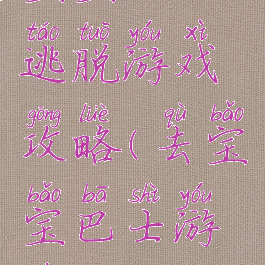 táo tuō yóu xì
逃脱游戏
gōng lüè qù bǎo
攻略(去宝
bǎo bā shì yóu
宝巴士游